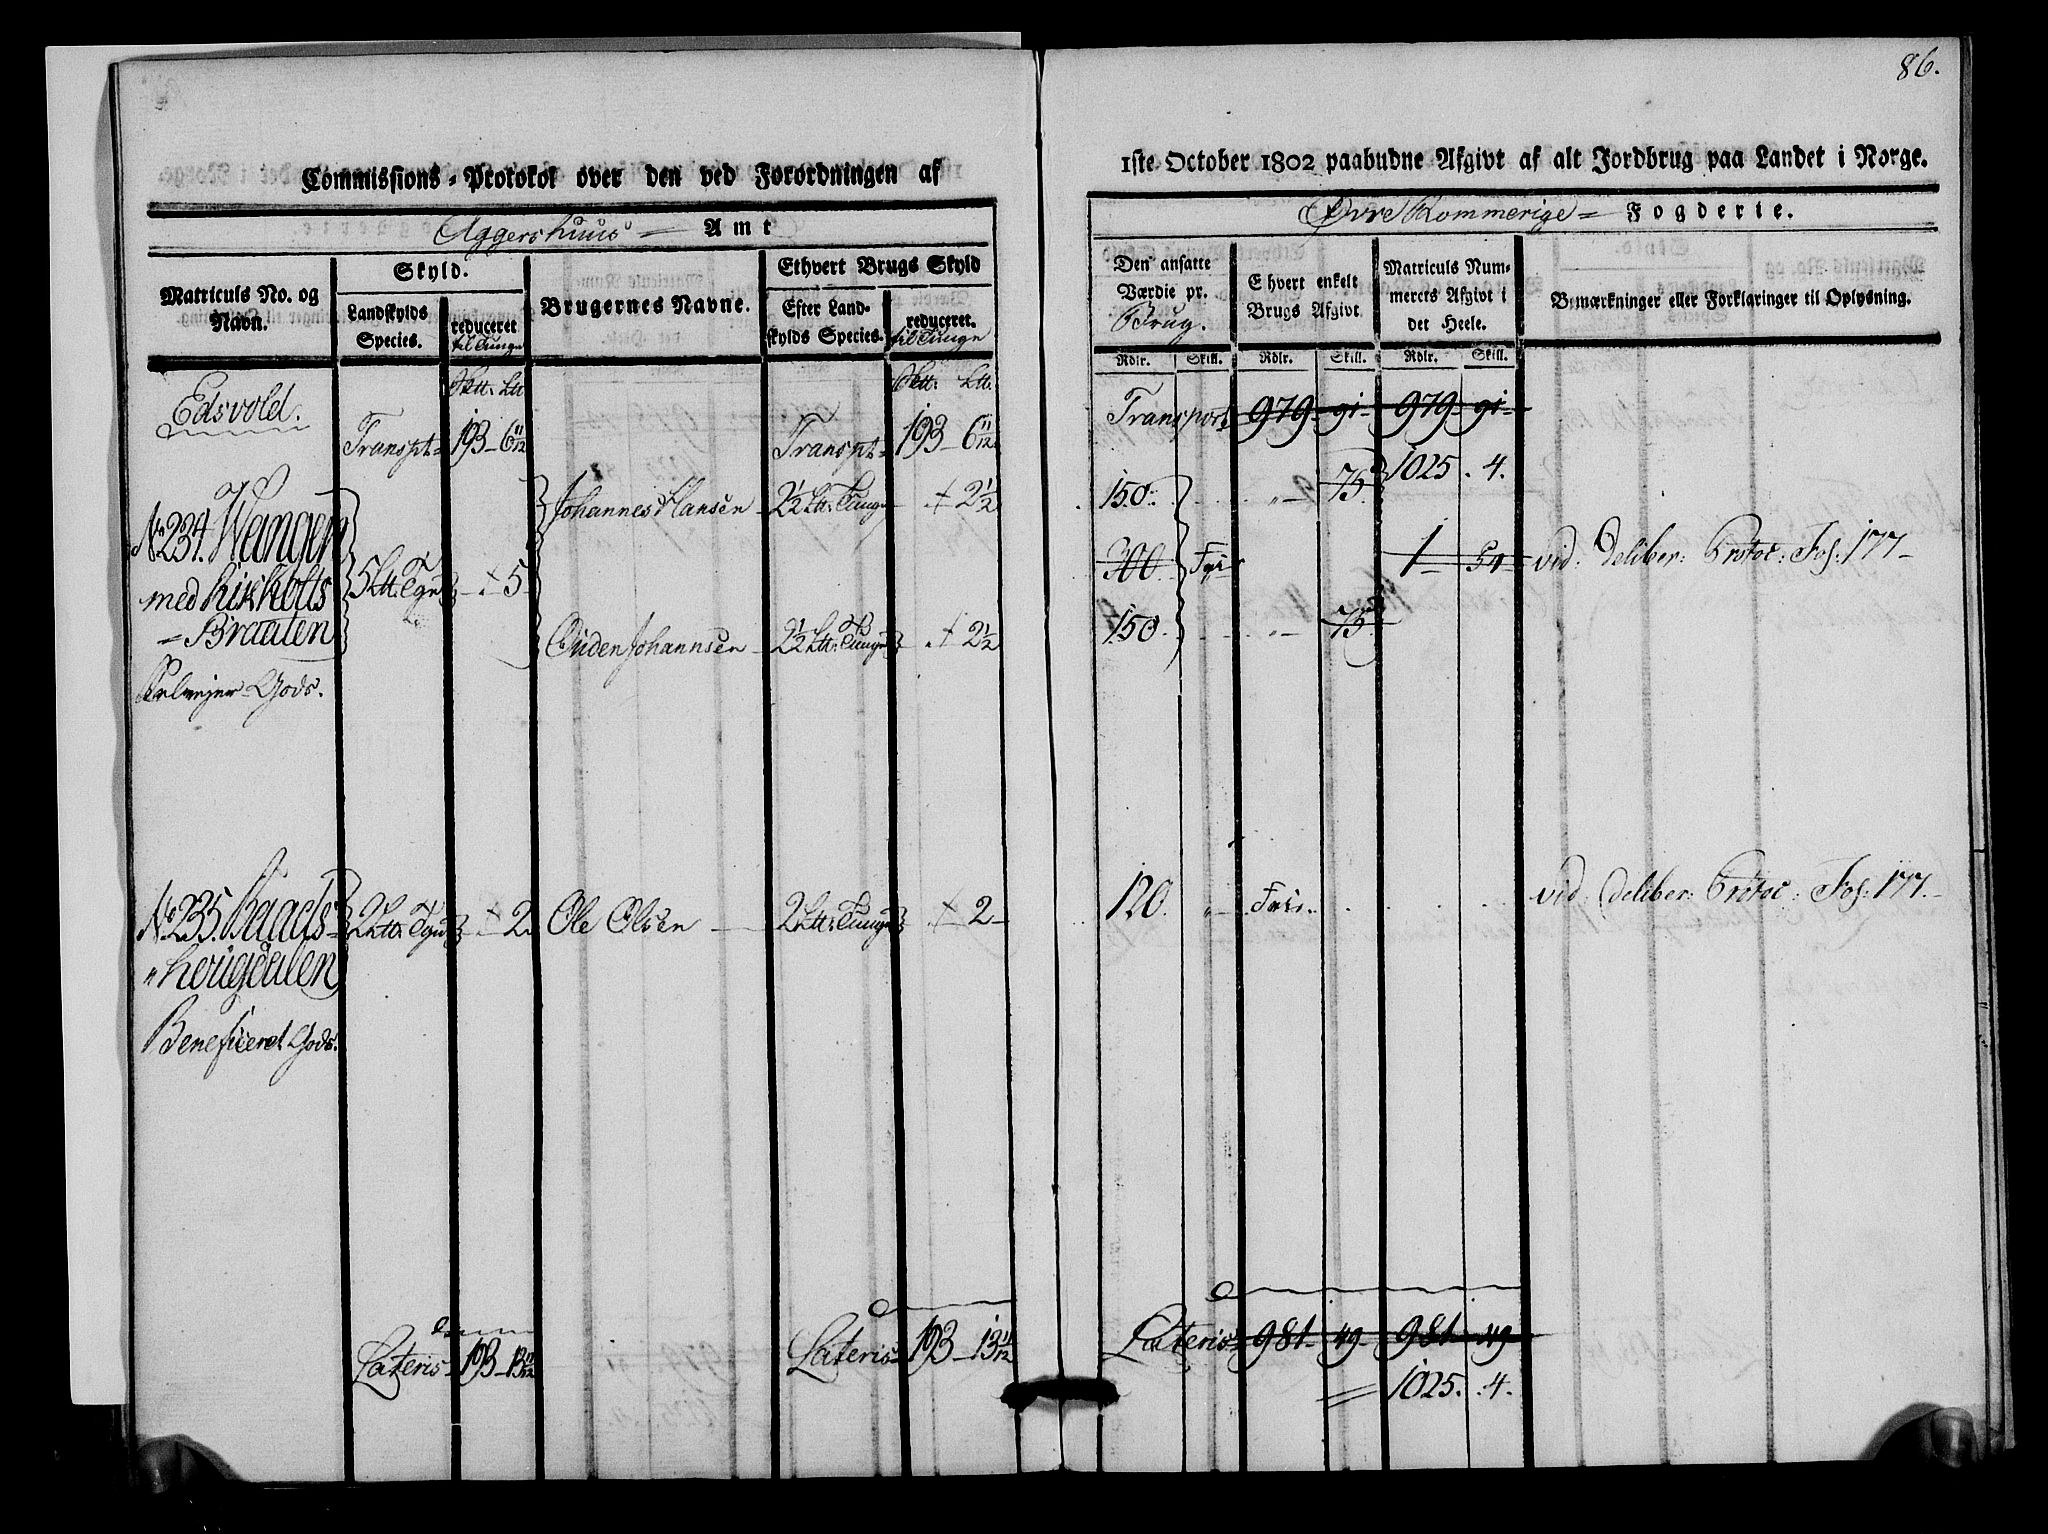 86.
Commissions-Protokol over den ved Forordningen af
1ste October 1802 paabudne Afgivt af alt Jordbrug paa Landet i Norge.
Aggershuus Amt
Øvre Rommerige Fogderie.
Matriculs No. og Navn.
Skyld.
Landskylds Species.
reduceret til Tunge
Brugernes Navne.
Ethvert Brugs Skyld
Efter Landskylds Species.
reduceret. til Tunge
Den ansatte Værdie pr. Brug.
Ehvert enkelt Brugs Afgivt
Matriculs Nummerets Afgivt i det Heele.
Bemærkninger eller Forklaringer til Oplysning.
Rdlr. Skill. Rdlr. Skill. Rdlr. Skill.
Edsvold.
Transpt 193 - 6 11/12
Transpt 193 6 11/12
Transport 979 91 979 91
1025 . 4.
No 234. Wangen
med
Braaten
Gods.
5 Ltt. Tge ⸗ 5
Johannes Hansen 2½ Ltt. Tunge ⸗ 2½
150. 75
300. Fri 1 54 vid: deliber: Protoc: Fol: 177
Ouden Johannsen 2½ Ltt. Tunge ⸗ 2½
150. 75
No 235. Baads-
hougdalen
Beneficeret Gods.
2 Ltt. Tge ⸗ 2. Ole Olsen 2 Ltt. Tunge ⸗ 2
120. Fri. vid: deliber: Protoc: Fol: 177
Lateris 193 - 13 11/12
Lateris 193 - 13 11/12
Lateris 981. 49 981 49
1025. 4.